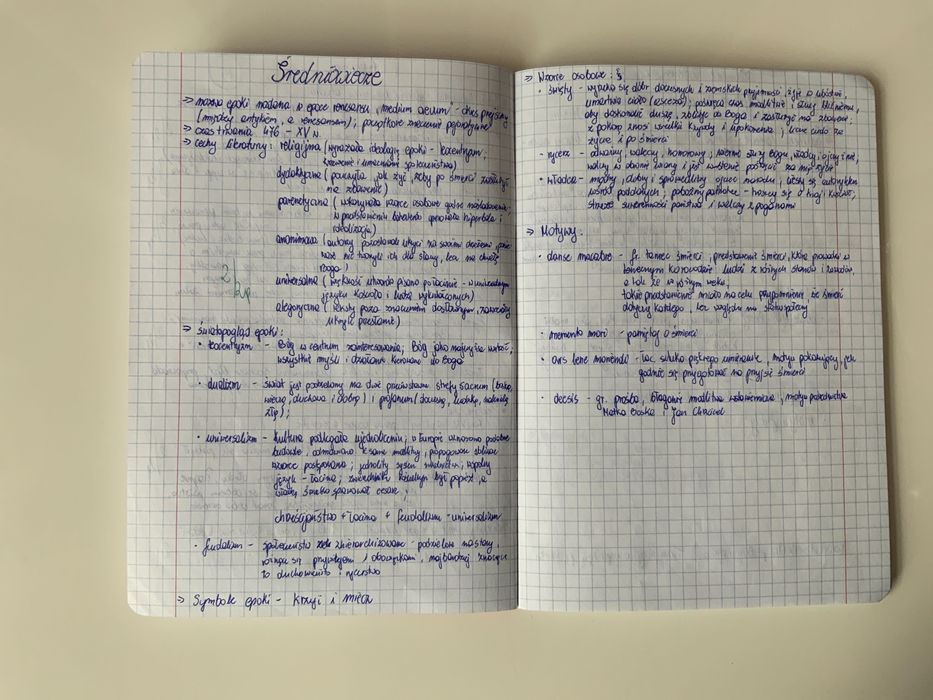 Średniowiecze
⇒ nazwa epoki nadana w epoce renesansu, "medium aevum" - okres przejściowy
(między antykiem, a renesansem); początkowe znaczenie pejoratywne
⇒ czas trwania 476 - XV w.
⇒ cechy literatury: religijna (wyrażała ideologię epoki - teocentryzm;
dydaktyczna (pouczała, jak żyć, żeby po śmierci zasłużyć
na zbawienie)
parenetyczna (wzorce osobowe godne naśladowania;
w przedstawieniu bohatera hiperbola i
idealizacja)
anonimowa (autorzy pozostawali ukryci za swoimi dziełami
nie tworzyli ich dla sławy, lecz na chwałę
Boga)
uniwersalna (większość utworów pisano po łacinie - uniwersalnym
języku Kościoła i ludzi wykształconych)
alegoryczna (teksty poza znaczeniem dosłownym zawierały
ukryte przesłanie)
⇒ światopogląd epoki:
• teocentryzm - Bóg w centrum zainteresowania; Bóg jako najwyższa wartość;
wszystkie myśli i działania kierowane do Boga
• dualizm - świat jest podzielony na dwie przeciwstawne strefy sacrum (boską,
wieczną, duchową i dobrą) i profanum (doczesną, ludzką, materialną
złą);
• uniwersalizm - kultura podlegała ujednoliceniu; w Europie wznoszono podobne
budowle, odmawiano te same modlitwy, propagowano zbliżone
wzorce postępowania; jednolity system; wspólny
język - łacina; zwierzchnikiem był papież, a
władzę świecką sprawował cesarz;
chrześcijaństwo + łacina + feudalizm = uniwersalizm
• feudalizm - społeczeństwo zhierarchizowane - podzielone na stany,
różniące się przywilejami i obowiązkami, najbardziej znaczące
to duchowieństwo i rycerstwo
⇒ Symbole epoki - krzyż i miecz
⇒ Wzorce osobowe:
• święty - wyrzeka się dóbr doczesnych i ziemskich przyjemności, żyje w ubóstwie,
umartwia ciało (asceza); poświęca czas modlitwie i służy bliźniemu,
aby doskonalić duszę, zbliżyć do Boga i zasłużyć na zbawienie;
z pokorą znosi wszelkie krzywdy i upokorzenia; czyni cuda za
życia i po śmierci
• rycerz - odważny, waleczny, honorowy; wiernie służy Bogu, władcy, ojczyźnie;
walczy w obronie wiary i jest w stanie poświęcić za nią życie
• władca - mądry, dobry i sprawiedliwy ojciec narodu; cieszy się autorytetem
wśród poddanych; pobożny - troszczy się o kraj i Kościół;
strzeże suwerenności państwa i walczy z poganami
⇒ Motywy:
• danse macabre - fr. taniec śmierci, przedstawienie śmierci, która prowadzi w
tanecznym korowodzie ludzi z różnych stanów i zawodów,
a także w różnym wieku,
takie przedstawienie miało na celu przypomnienie, że śmierć
dotyczy każdego, bez względu na status społeczny
• memento mori - pamiętaj o śmierci
• ars bene moriendi - łac. sztuka pięknego umierania, motyw pokazujący, jak
godnie się przygotować na przyjście śmierci
• deesis - gr. prośba, błaganie, modlitwa wstawiennicza, motyw pośrednictwa
Matka Boska i Jan Chrzciciel